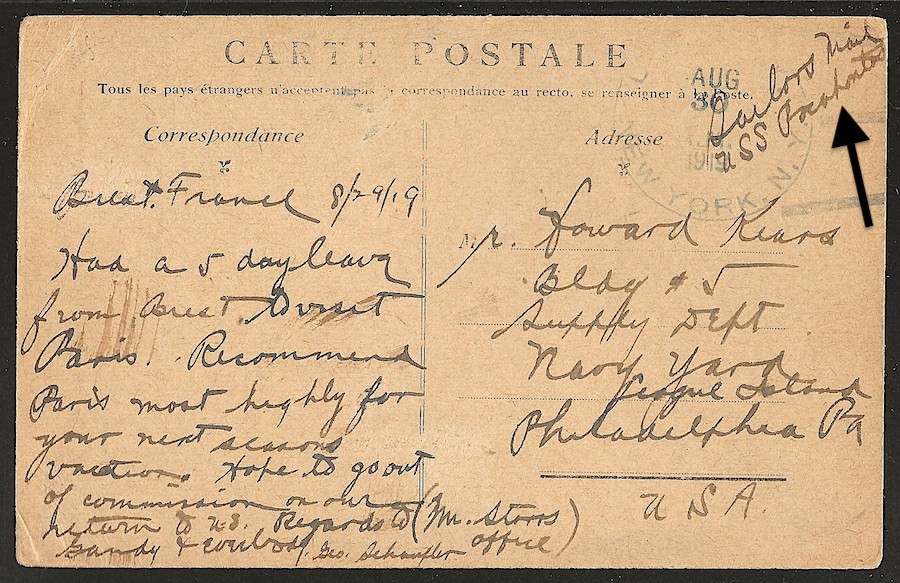 CARTE POSTALE
Tous les pays étrangers n'acceptent pas la correspondance au recto, se renseigner à la Poste.
Sailors Mail
USS Pocahontas
AUG
30
1919
NEW YORK, N.Y.
Correspondance
Adresse
Brest. France 8/29/19
Had a 5 day leave
from Brest. To visit
Paris. Recommend
Paris most highly for
your next seasons
vacation. Hope to go out
of commission on our
return to U.S. Regards to
Gandy & Geo. Schaufler
(Mr. Storrs
office)
Mr. Howard Kears
Bldg # 5
Supply Dept
Navy Yard
League Island
Philadelphia Pa
USA.